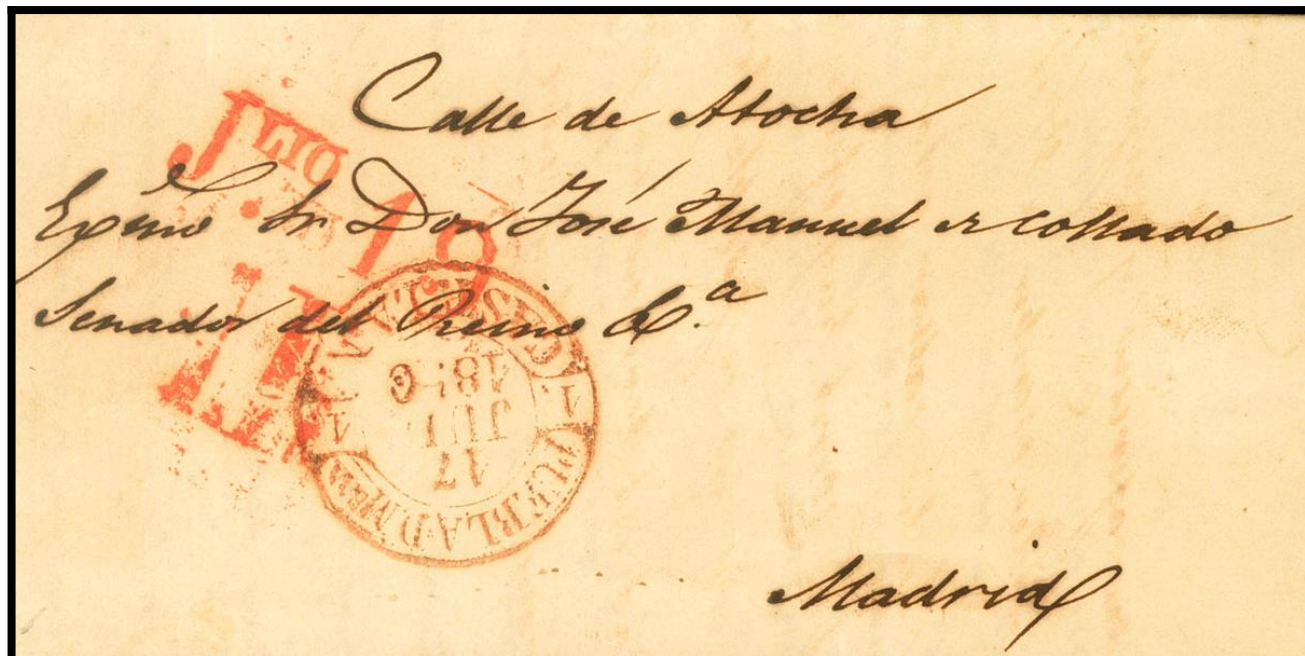 Calle de Atocha
Exmo Sr Don José Manuel de Collado
Senador del Reino &ª
Madrid
JLIO
19
17
JUL
1
1
PUEBLA D